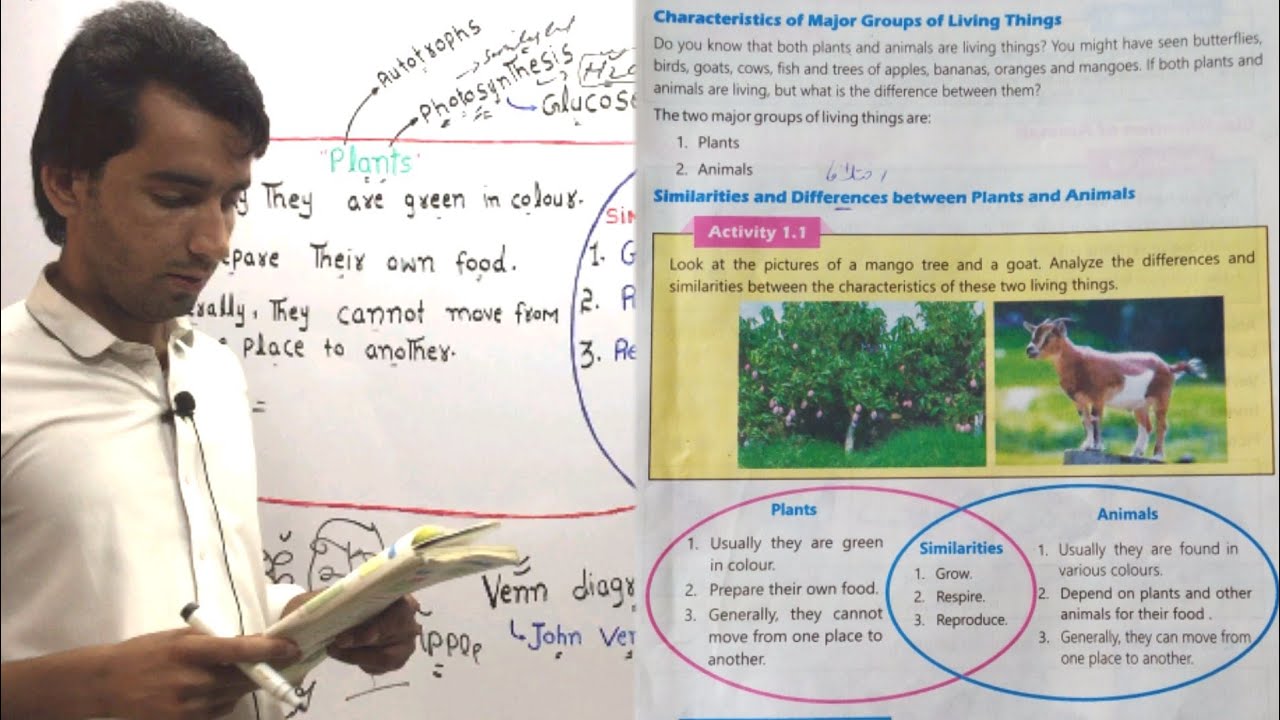 Autotrophs
Photosynthesis
H2O
Glucose
"Plants"
They are green in colour.
Their own food.
They cannot move from
place to another.
1. G
2. R
3. Re
Venn diagr
John Ven
Characteristics of Major Groups of Living Things
Do you know that both plants and animals are living things? You might have seen butterflies,
birds, goats, cows, fish and trees of apples, bananas, oranges and mangoes. If both plants and
animals are living, but what is the difference between them?
The two major groups of living things are:
1. Plants
2. Animals
Similarities and Differences between Plants and Animals
Activity 1.1
Look at the pictures of a mango tree and a goat. Analyze the differences and
similarities between the characteristics of these two living things.
Plants
1. Usually they are green
in colour.
2. Prepare their own food.
3. Generally, they cannot
move from one place to
another.
Similarities
1. Grow.
2. Respire.
3. Reproduce.
Animals
1. Usually they are found in
various colours.
2. Depend on plants and other
animals for their food .
3. Generally, they can move from
one place to another.